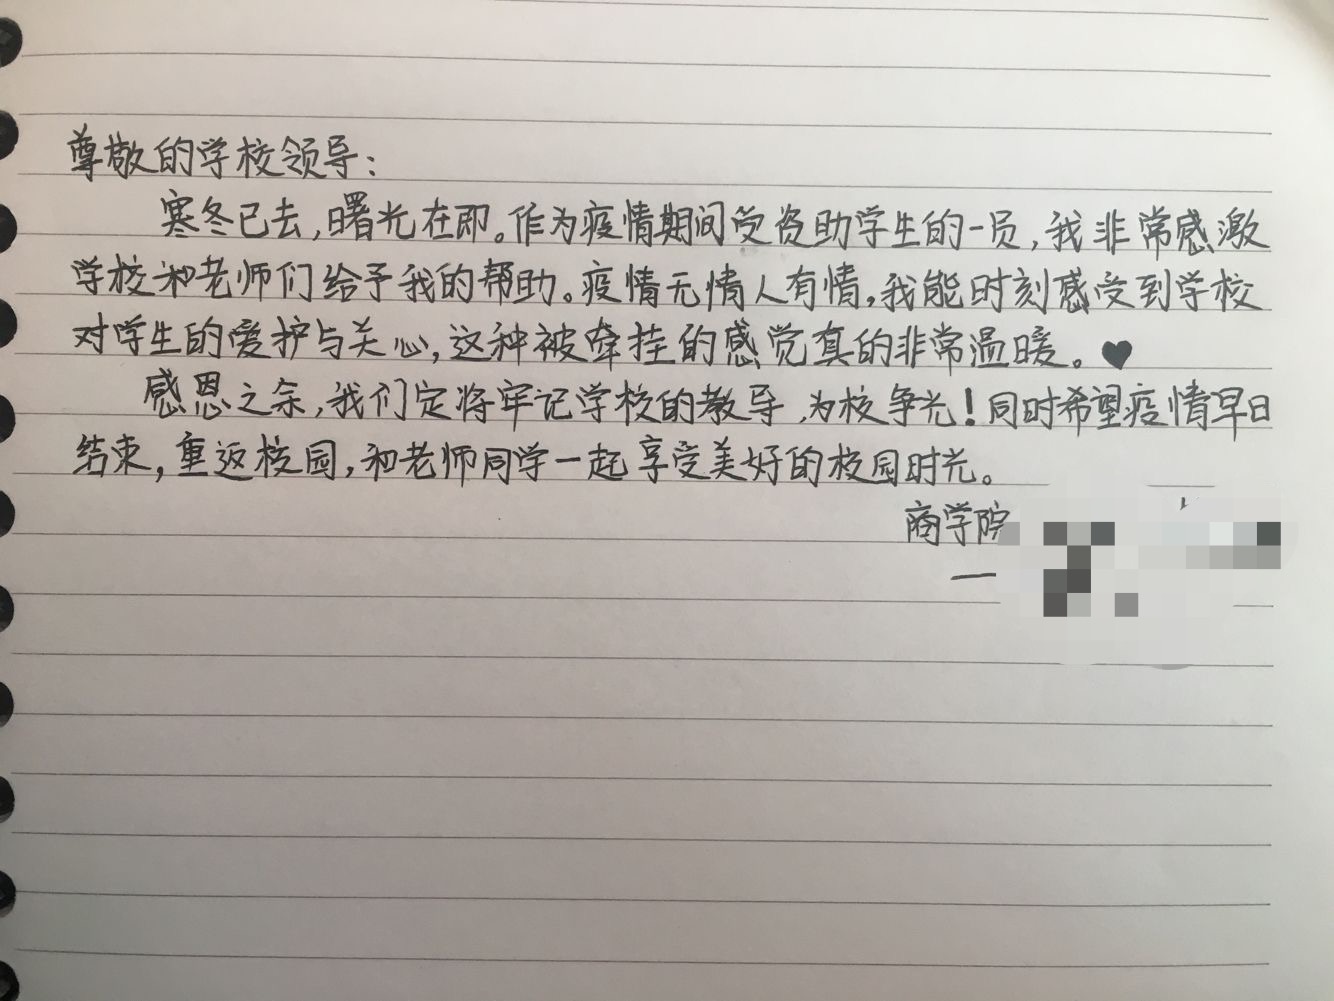 尊敬的学校领导：
寒冬已去，曙光在即。作为疫情期间受资助学生的一员，我非常感激
学校和老师们给予我的帮助。疫情无情人有情，我能时刻感受到学校
对学生的爱护与关心，这种被牵挂的感觉真的非常温暖。♥
感恩之余，我们定将牢记学校的教导，为校争光！同时希望疫情早日
结束，重返校园，和老师同学一起享受美好的校园时光。
商学院